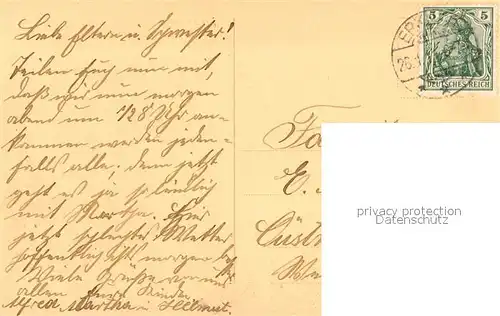 Liebe Eltern u. Schwester!
Teilen Euch nun mit,
daß wir nun morgen
abend um 1/28 Uhr an-
kommen werden jeden-
falls alle, denn jetzt
geht es ja so leidlich
mit Martha. Hier
jetzt schlechtes Wetter
hoffentlich ist morgen
Viele Grüße von uns
allen Eure Kinder
Alfred Martha u. Hellmut.
5 5
DEUTSCHES REICH
Fa
E.
Cüst
privacy protection
Datenschutz